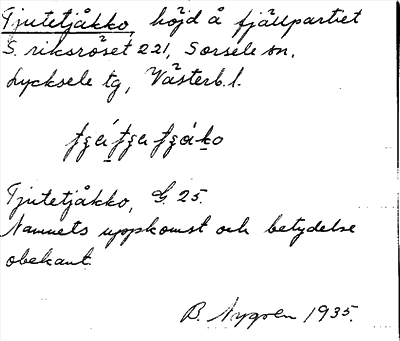 Tjutetjåkko, höjd å fjällpartiet
S. riksröset 221, Sorsele sn,
Lycksele tg, Västerb. l.
Tjutetjåkko, G 25.
Namnets uppkomst och betydelse
obekant.
B. Nygren 1935.